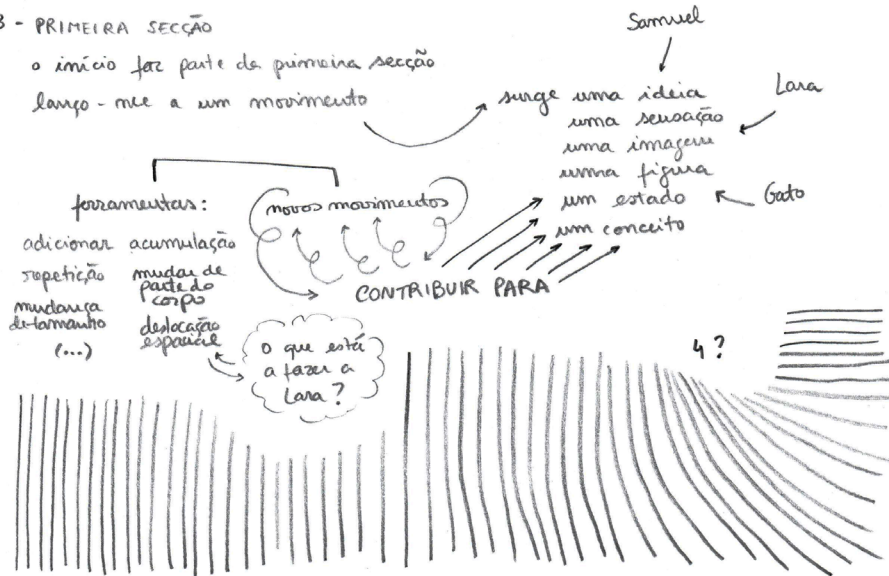 3 - PRIMEIRA SECÇÃO
o início faz parte da primeira secção
lanço-me a um movimento
Samuel
surge uma ideia
uma sensação
uma imagem
uma figura
um estado
um conceito
Lara
Gato
ferramentas:
adicionar acumulação
repetição mudar de
parte do
corpo
mudança
de tamanho
deslocação
espacial
(...)
novos movimentos
CONTRIBUIR PARA
O que está
a fazer a
Lara?
4?